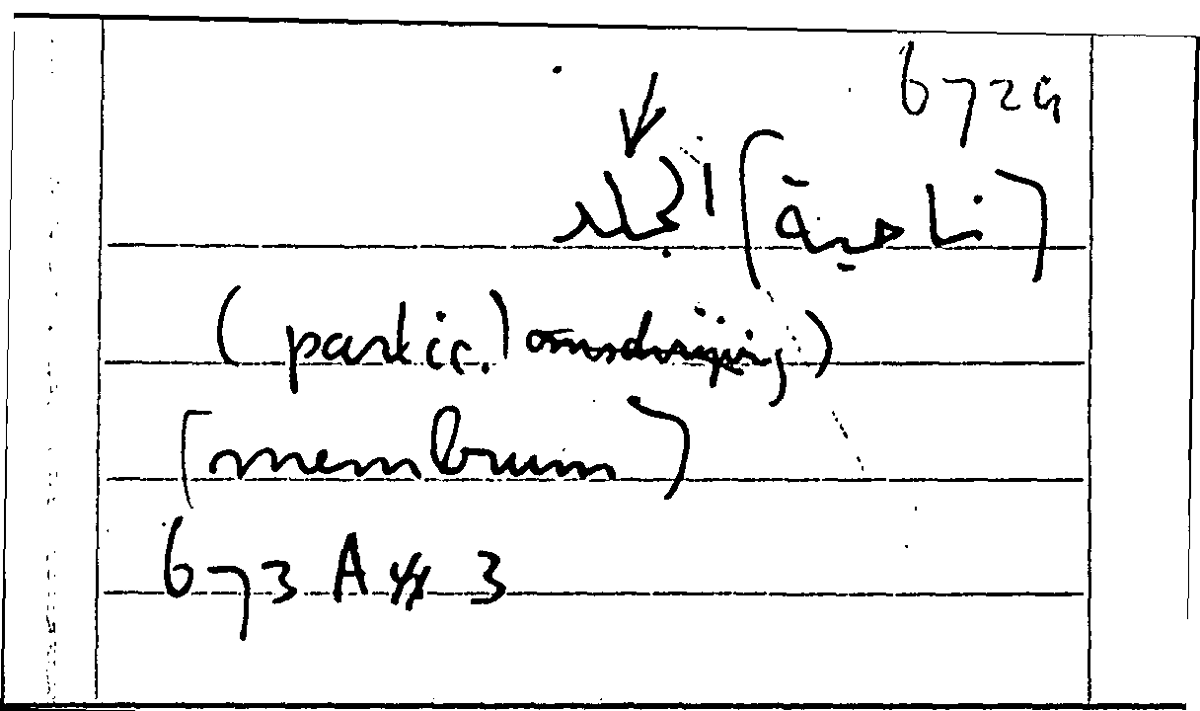 672a
(ناحية) الجلد
(partic.) omschrijving)
(membrum)
673 A 3